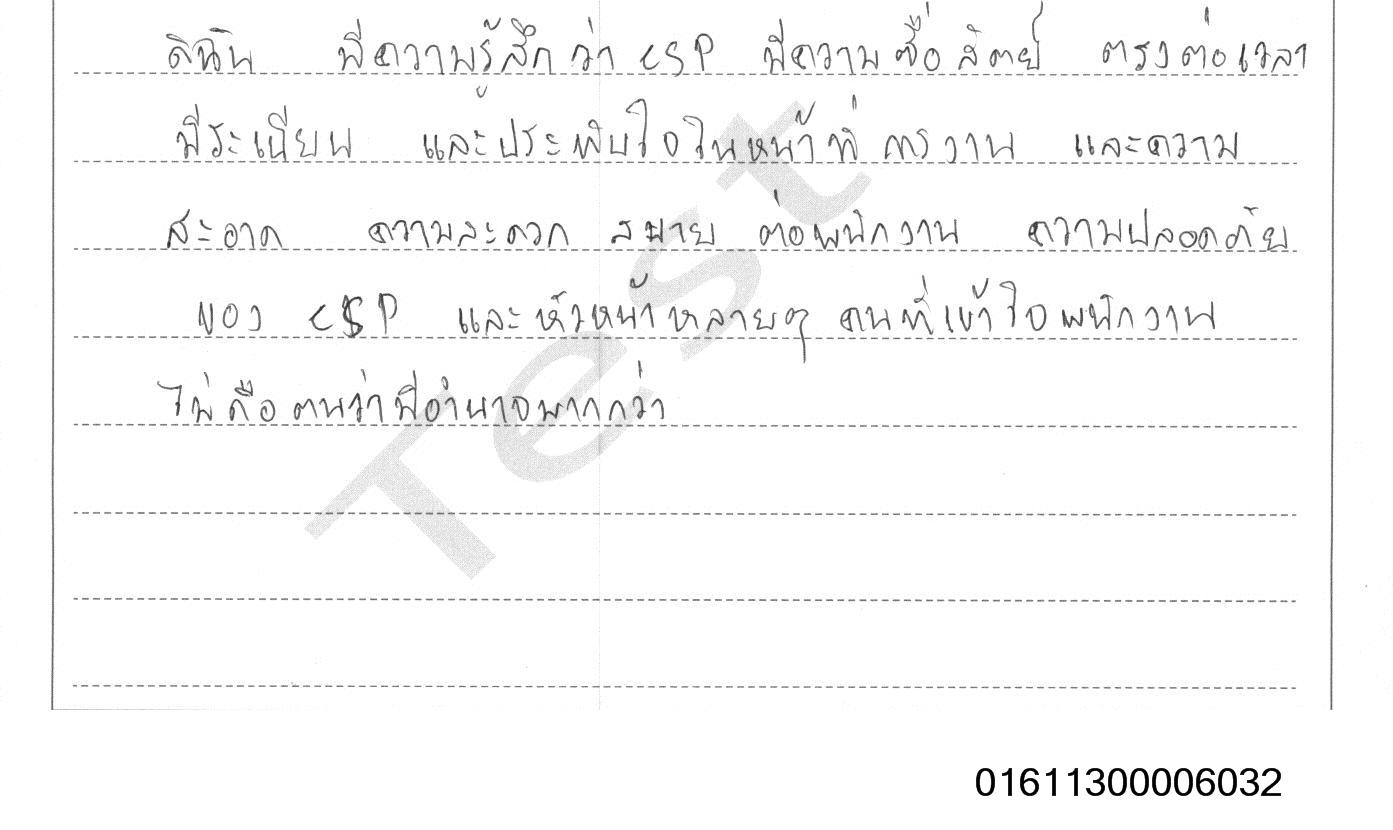 ดิฉัน มีความรู้สึกว่า CSP มีความซื่อสัตย์ ตรงต่อเวลา
มีระเบียบ และประทับใจในหน้าที่การงาน และความ
สะอาด ความสะดวก สบาย ต่อพนักงาน ความปลอดภัย
ของ CSP และหัวหน้าหลายๆ คนที่เข้าใจพนักงาน
ไม่ถือตนว่ามีอำนาจมากกว่า
Test
01611300006032